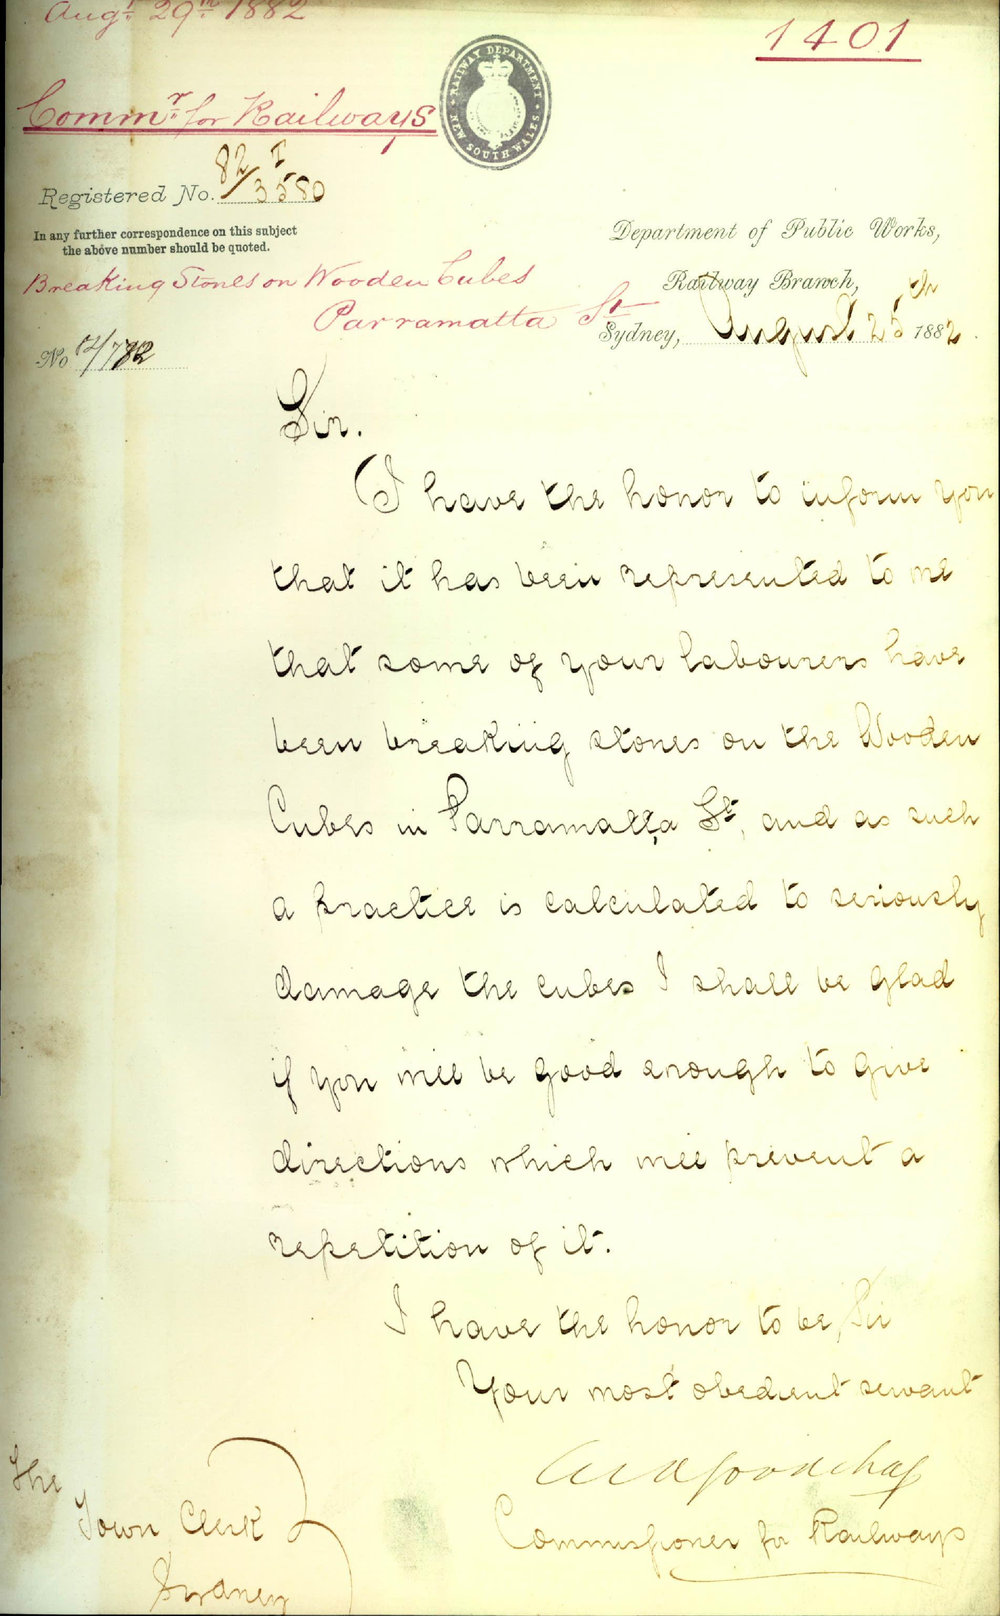 Augt 29th 1882
1401
Commr for Railways
RAILWAY DEPARTMENT
NEW SOUTH WALES
Registered No. 82/3580 I
In any further correspondence on this subject
the above number should be quoted.
Department of Public Works,
Railway Branch,
Breaking Stones on Wooden Cubes
Parramatta St
Sydney, August 25th 1882.
No 12/782
Sir.
I have the honor to inform you
that it has been represented to me
that some of your labourers have
been breaking stones on the Wooden
Cubes in Parramatta St, and as such
a practice is calculated to seriously
damage the cubes I shall be glad
if you will be good enough to give
directions which will prevent a
repetition of it.
I have the honor to be, Sir
Your most obedient servant
Goodchap
Commissioner for Railways
The
Town Clerk
Sydney